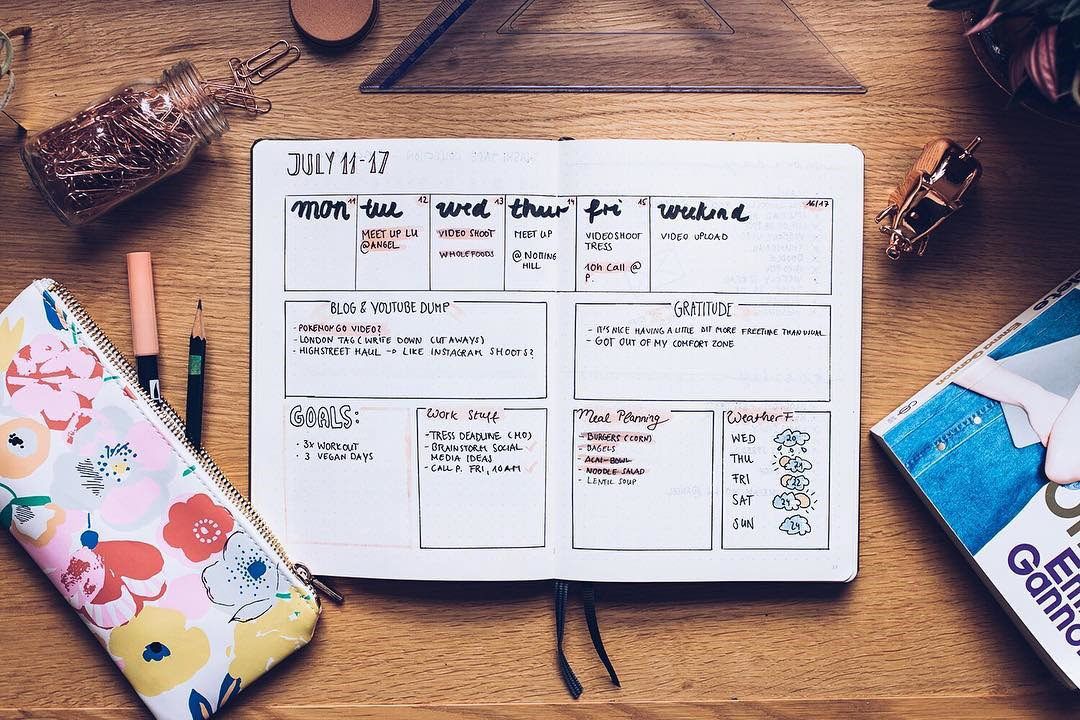 JULY 11-17
mon 11
tue 12
MEET UP LU
@ANGEL
wed 13
VIDEO SHOOT
WHOLEFOODS
thur 14
MEET UP
@NOTTING
HILL
fri 15
VIDEOSHOOT
TRESS
10h Call @
P.
weekend 16/17
VIDEO UPLOAD
BLOG & YOUTUBE DUMP
- POKEMON GO VIDEO?
- LONDON TAG (WRITE DOWN CUTAWAYS)
- HIGHSTREET HAUL → LIKE INSTAGRAM SHOOTS?
GRATITUDE
- IT'S NICE HAVING A LITTLE BIT MORE FREETIME THAN USUAL
- GOT OUT OF MY COMFORT ZONE
GOALS:
· 3x WORKOUT
· 3 VEGAN DAYS
Work Stuff
- TRESS DEADLINE (MO)
- BRAINSTORM SOCIAL
MEDIA IDEAS
- CALL P. FRI, 10AM
Meal Planning
- BURGERS (CORN)
- BAGELS
- ACAI-BOWL
- NOODLE SALAD
- LENTIL SOUP
Weather
WED 20
THU 22
FRI
SAT 24
SUN 24
Emma Gannon
Em
Ganno